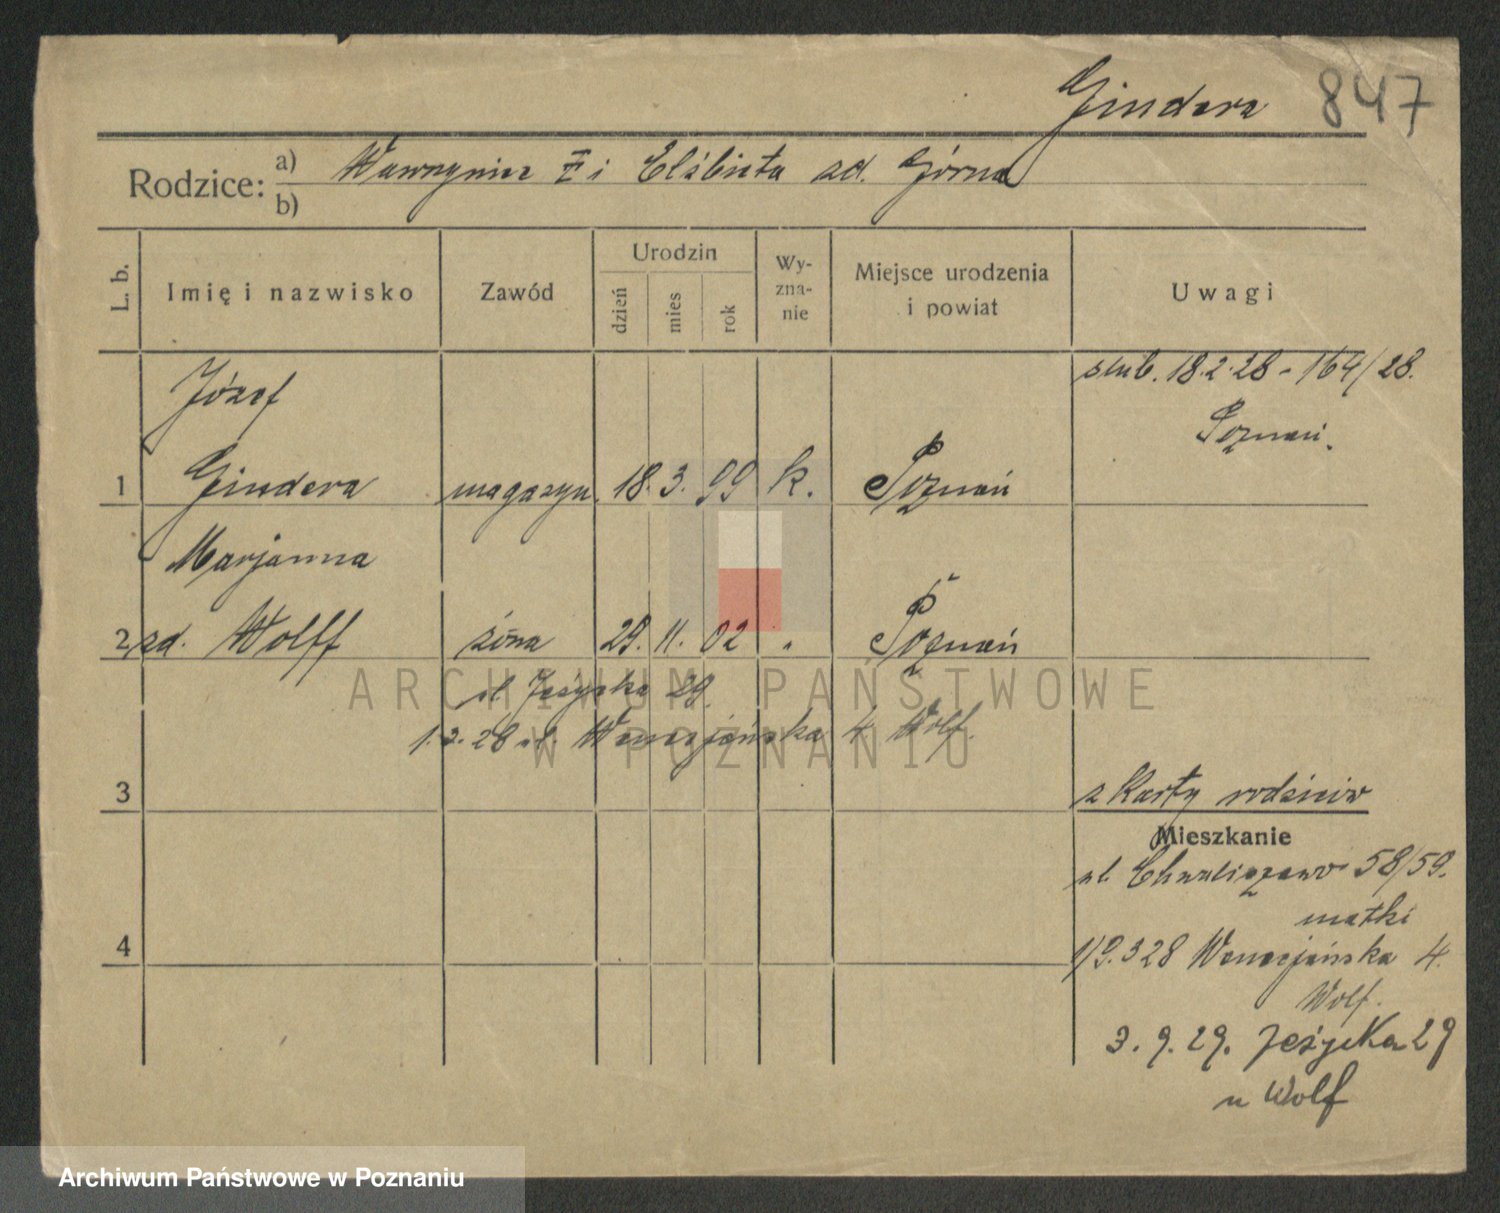 Gindera 847
Rodzice:
a) Wawrzyniec i Elżbieta zd. Górna
b)
L. b.
Imię i nazwisko
Zawód
Urodzin
dzień
mies
rok
Wy-
zna-
nie
Miejsce urodzenia
i powiat
Uwagi
ślub. 18.2.28 - 164/28.
Poznań.
Józef
1 Gindera magazyn. 18. 3. 99 k. Poznań
Marjanna
2 zd. Wolff żona 29. 11. 02 " Poznań
ul. Jeżycka 29.
1.3.28 ul. Wenecjańska 4 Wolf.
3
z karty rodziców
Mieszkanie
ul. Chwaliszewo 58/59.
matki
4
1/9.3 28 Wenecjańska 4.
Wolf.
3. 9. 29. Jeżycka 29
u Wolf
ARCHIWUM PAŃSTWOWE
W POZNANIU
Archiwum Państwowe w Poznaniu